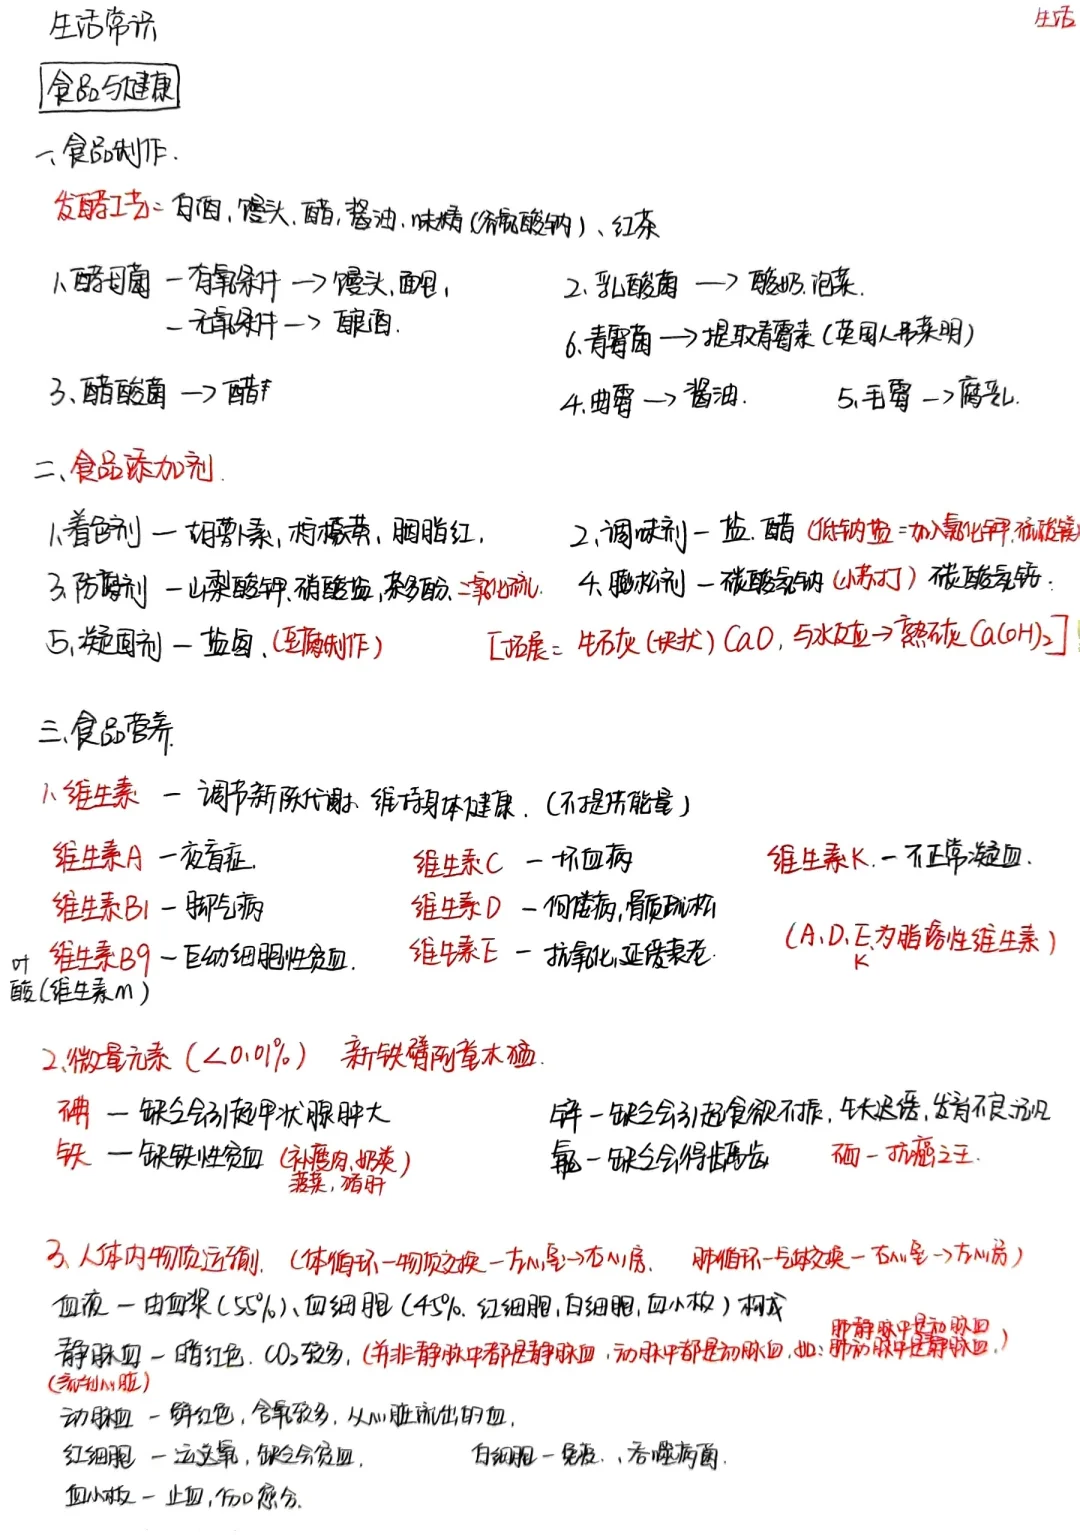 生活常识
生活
食品与健康
一、食品制作.
发酵工艺：白酒、馒头、醋、酱油、味精(谷氨酸钠)、红茶
1、酵母菌 — 有氧条件 → 馒头、面包、
— 无氧条件 → 酿酒.
2、乳酸菌 → 酸奶、泡菜.
6、青霉菌 → 提取青霉素(英国人弗莱明)
3、醋酸菌 → 醋
4、曲霉 → 酱油.
5、毛霉 → 腐乳.
二、食品添加剂.
1、着色剂 — 胡萝卜素、柠檬黄、胭脂红、
2、调味剂 — 盐、醋 (低钠盐=加入氯化钾、硫酸镁
3、防腐剂 — 山梨酸钾、硝酸盐、茶多酚、二氧化硫.
4、膨松剂 — 碳酸氢钠(小苏打) 碳酸氢铵.
5、凝固剂 — 盐卤、(豆腐制作)
[拓展= 生石灰(块状) CaO, 与水反应→熟石灰Ca(OH)₂]
三、食品营养.
1、维生素 — 调节新陈代谢、维持身体健康. (不提供能量)
维生素A — 夜盲症.
维生素C — 坏血病
维生素K — 不正常凝血.
维生素B1 — 脚气病
维生素D — 佝偻病,骨质疏松
维生素B9 — 巨幼细胞性贫血.
叶酸(维生素m)
维生素E — 抗氧化,延缓衰老.
(A、D、E、K为脂溶性维生素)
2、微量元素(<0.01%) 新铁臂阿童木猛.
碘 — 缺乏会引起甲状腺肿大
锌 — 缺乏会引起食欲不振,生长迟缓,发育不良
铁 — 缺铁性贫血 (补瘦肉、奶类)
菠菜、猪肝
氟 — 缺乏会得龋齿
硒 — 抗癌之王.
3、人体内物质运输. (体循环—物质交换—左心室→右心房. 肺循环—气体交换—右心室→左心房)
血液 — 由血浆(55%)、血细胞(45%.红细胞,白细胞,血小板)构成
肺静脉中是动脉血
静脉血 — 暗红色. CO₂较多, (并非静脉中都是静脉血,动脉中都是动脉血,如: 肺动脉中是静脉血.)
(流到心脏)
动脉血 — 鲜红色,含氧较多,从心脏流出的血.
红细胞 — 运送氧,缺乏会贫血.
白细胞 — 免疫.、吞噬病菌.
血小板 — 止血,伤口愈合.